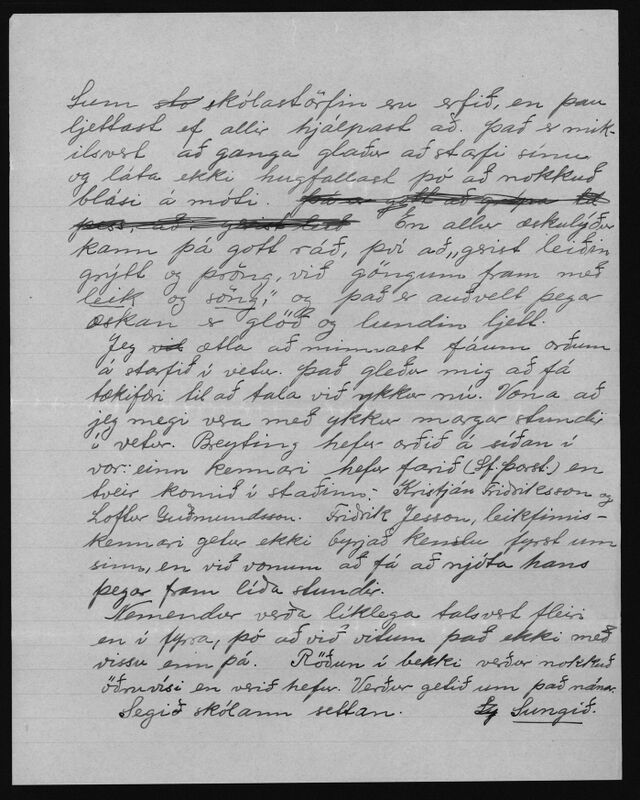 Sum sto skólastörfin eru erfið, en þau
ljettast ef allir hjálpast að. Það er mik-
ilsvert að ganga glaður að starfi sínu
og láta ekki hugfallast þó að nokkuð
blási á móti. Þá er gott að grípa til
þess, að, gerist leið En allur æskulýður
kann þá gott ráð, því að „gerist leiðin
grýtt og þröng, við göngum fram með
leik og söng,“ og það er auðvelt þegar
æskan er glöð og lundin ljett.
Jeg vil ætla að minnast fáum orðum
á starfið í vetur. Það gleður mig að fá
tækifæri til að tala við ykkur nú. Vona að
jeg megi vera með ykkur margar stundir
í vetur. Breyting hefur orðið á síðan í
vor: einn kennari hefur farið (Sf. Þorst.) en
tveir komið í staðinn: Kristján Friðriksson og
Loftur Guðmundsson. Friðrik Jesson, leikfimis-
kennari getur ekki byrjað kenslu fyrst um
sinn, en við vonum að fá að njóta hans
þegar fram líða stundir.
Nemendur verða líklega talsvert fleiri
en í fyrra, þó að við vitum það ekki með
vissu enn þá. Röðun í bekki verður nokkuð
öðruvísi en verið hefur. Verður getið um það nánar.
Segið skólann settan. Sungið.